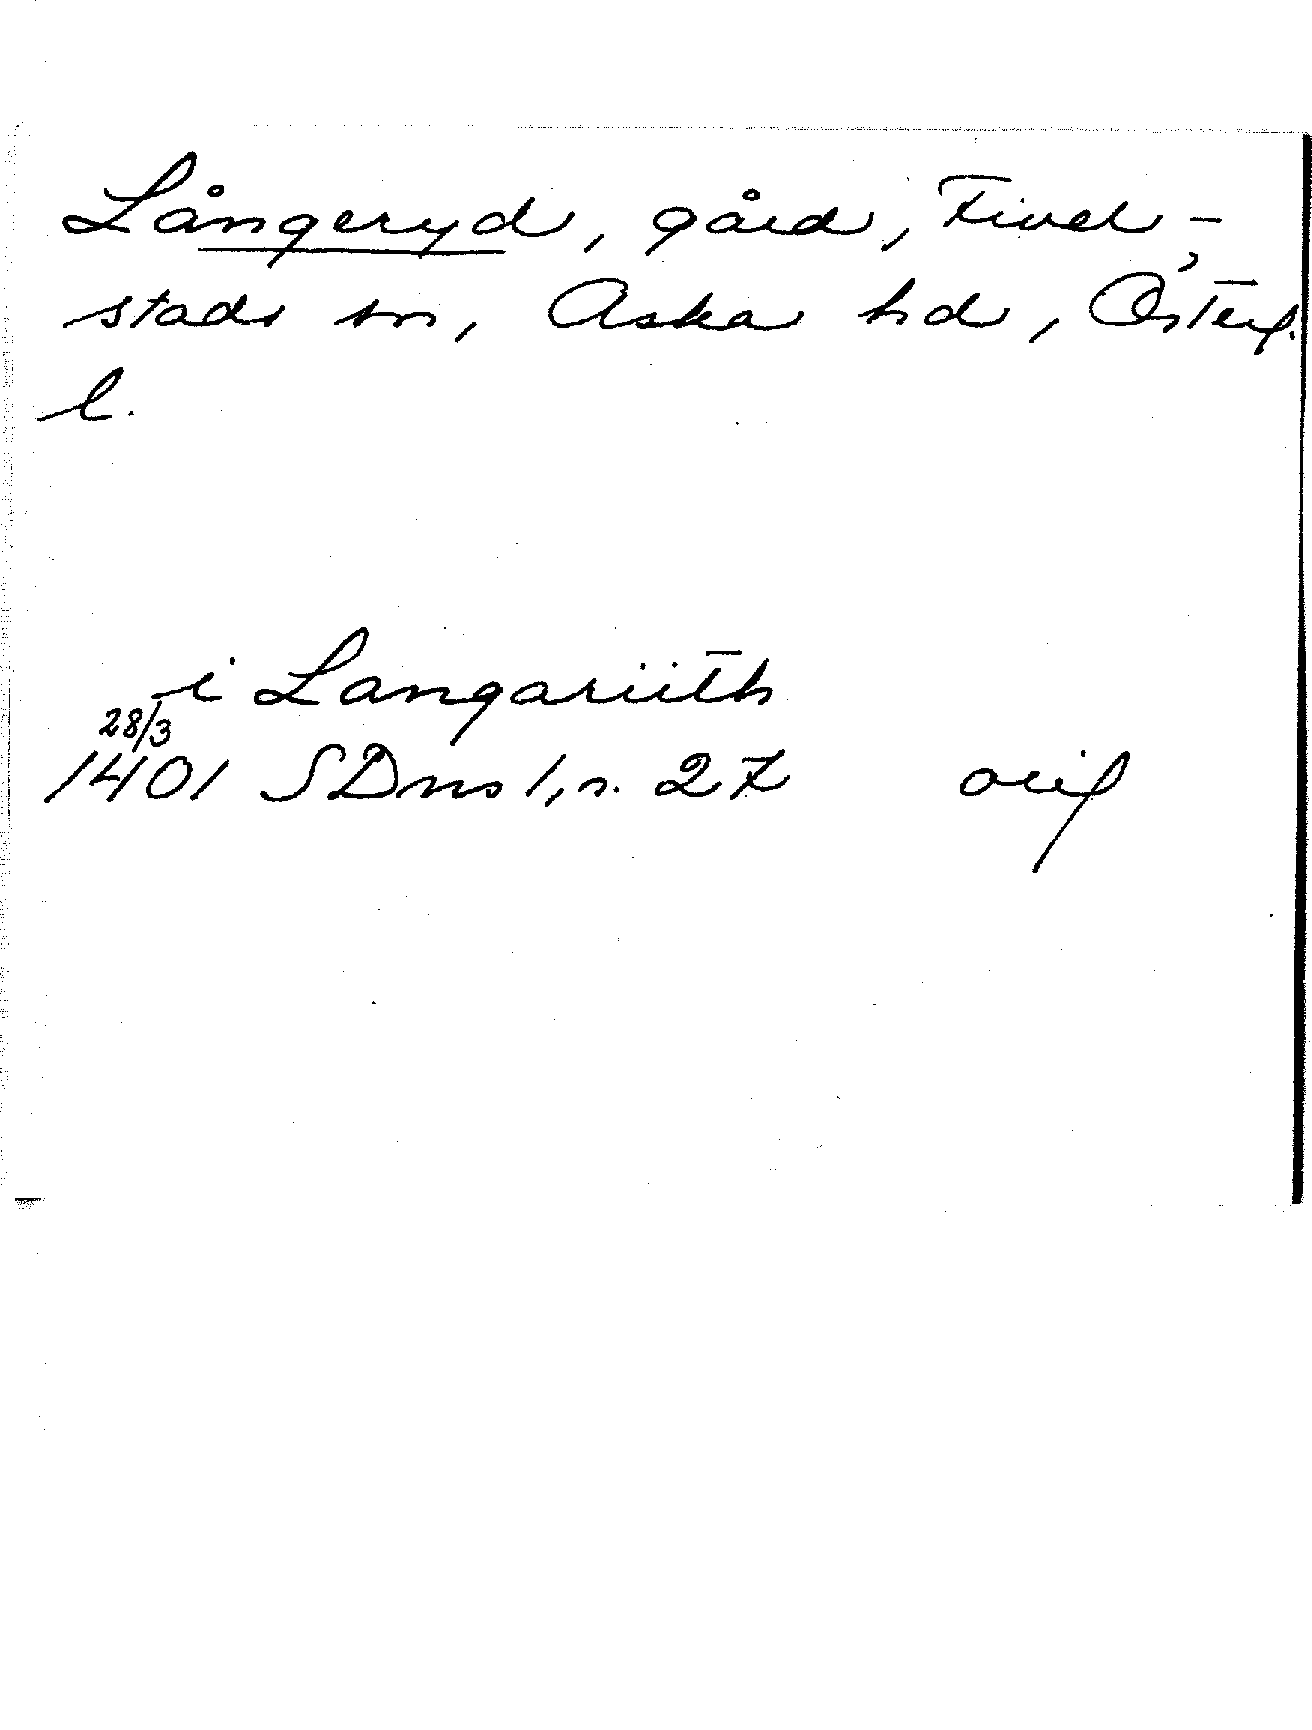 Långeryd, gård, Fivel-
stads sn, Aska hd, Österg.
l.
i Langariith
28/3
1401 SDns 1, s. 27 orig